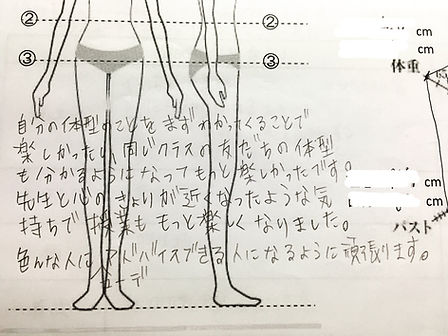 ② ② cm
cm
③ ③
体重
自分の体型のことをまずわかってくることで
楽しかったし、同じクラスの友だちの体型
も分かるようになってもっと楽しかったです。
cm
先生と心のきょりが近くなったような気
cm
持ちで授業ももっと楽しくなりました。
バスト
色んな人にアドバイスできる人になるように頑張ります。